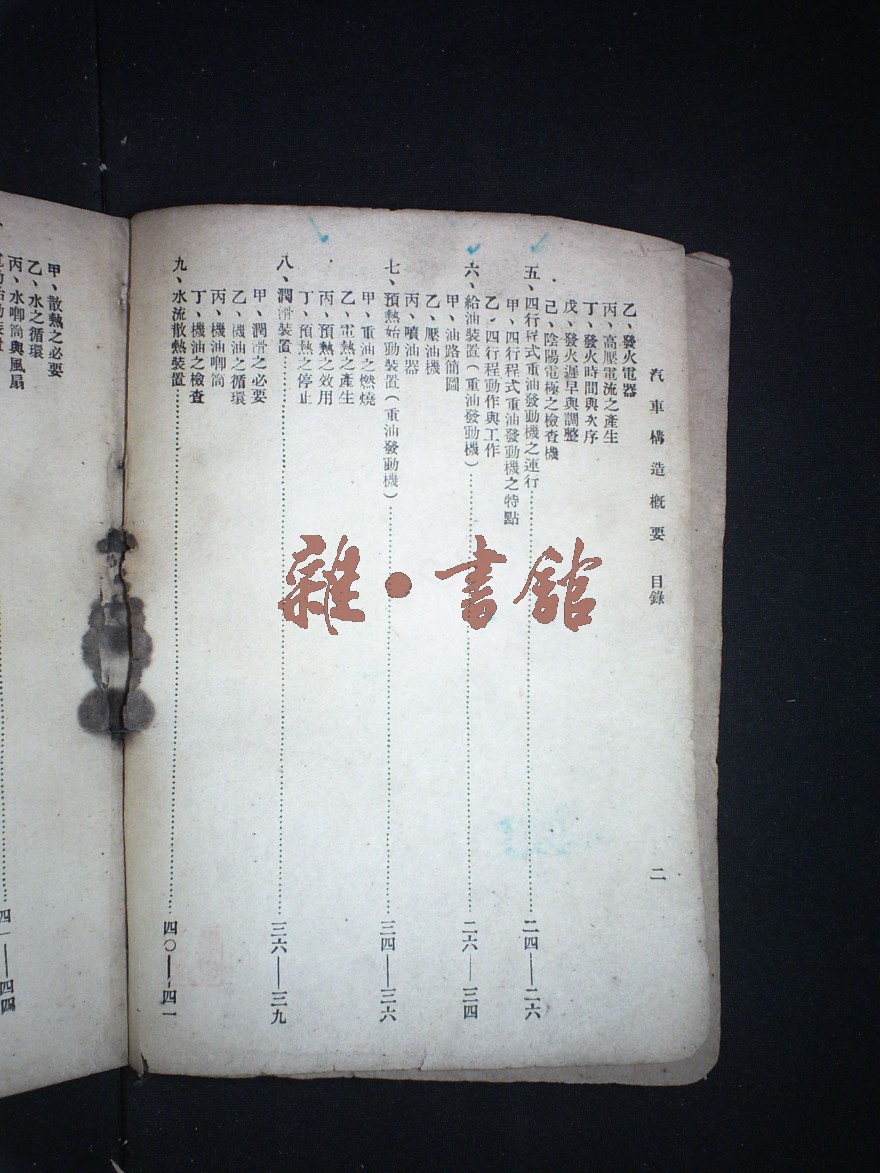 汽車構造概要 目錄 二
乙、發火電器
丙、高壓電流之產生
丁、發火時間與次序
戊、發火遲早與調整
己、陰陽電極之檢查機
五、四行程式重油發動機之運行⋯⋯二四——二六
甲、四行程式重油發動機之特點
乙、四行程動作與工作
六、給油裝置(重油發動機)⋯⋯二六——三四
甲、油路簡圖
乙、壓油機
丙、噴油器
七、預熱始動裝置(重油發動機)⋯⋯三四——三六
甲、重油之燃燒
乙、電熱之產生
丙、預熱之效用
丁、預熱之停止
八、潤滑裝置⋯⋯三六——三九
甲、潤滑之必要
乙、機油之循環
丙、機油唧筒
丁、機油之檢查
九、水流散熱裝置⋯⋯四〇——四一
甲、散熱之必要
乙、水之循環
丙、水唧筒與風扇
四一——四四
雜·書館